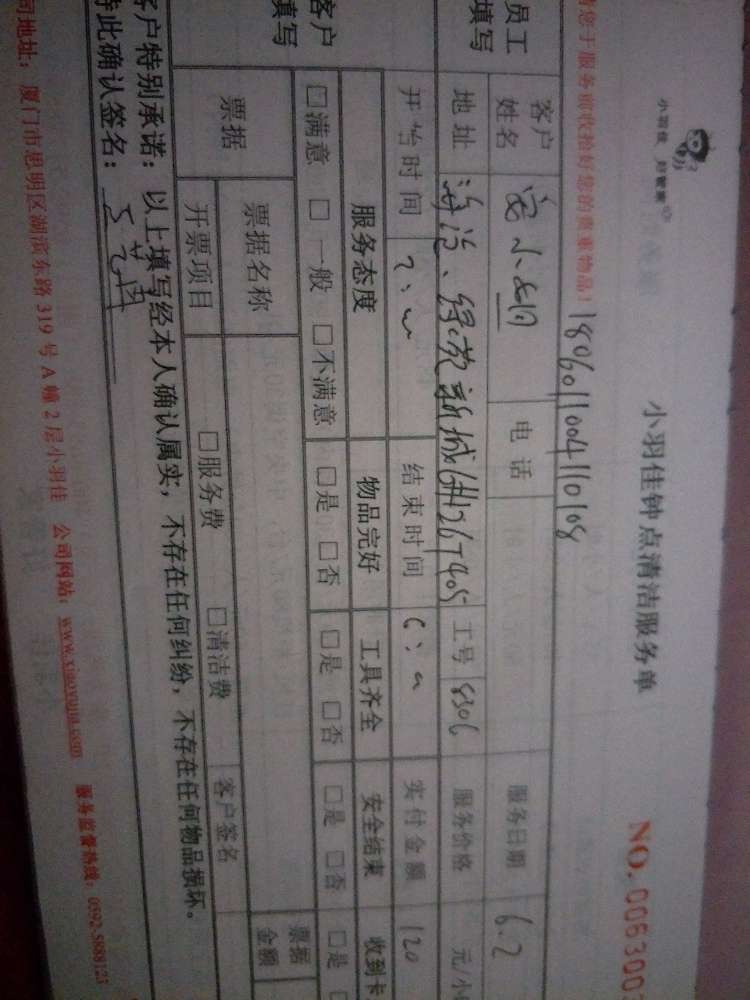 小羽佳 好管家
小羽佳钟点清洁服务单
NO. 006300
请您于服务前收拾好您的贵重物品! 1806011004110108
员工填写
客户姓名 电话 服务日期 6.2
地址 绿苑新城 工号 8306 服务价格 元/小
开始时间 结束时间 实付金额 120
客户填写
服务态度 物品完好 工具齐全 安全结束 收到卡
□满意 □一般 □不满意 □是 □否 □是 □否 □是 □否 □是
票据 票据名称 □服务费 □清洁费 票据金额
开票项目 客户签名
客户特别承诺: 以上填写经本人确认属实, 不存在任何纠纷, 不存在任何物品损坏。
特此确认签名:
司地址: 厦门市思明区湖滨东路 319 号 A 幢 2 层小羽佳 公司网站: www.xiaoyujia.com 服务监督热线: 0592-5888121